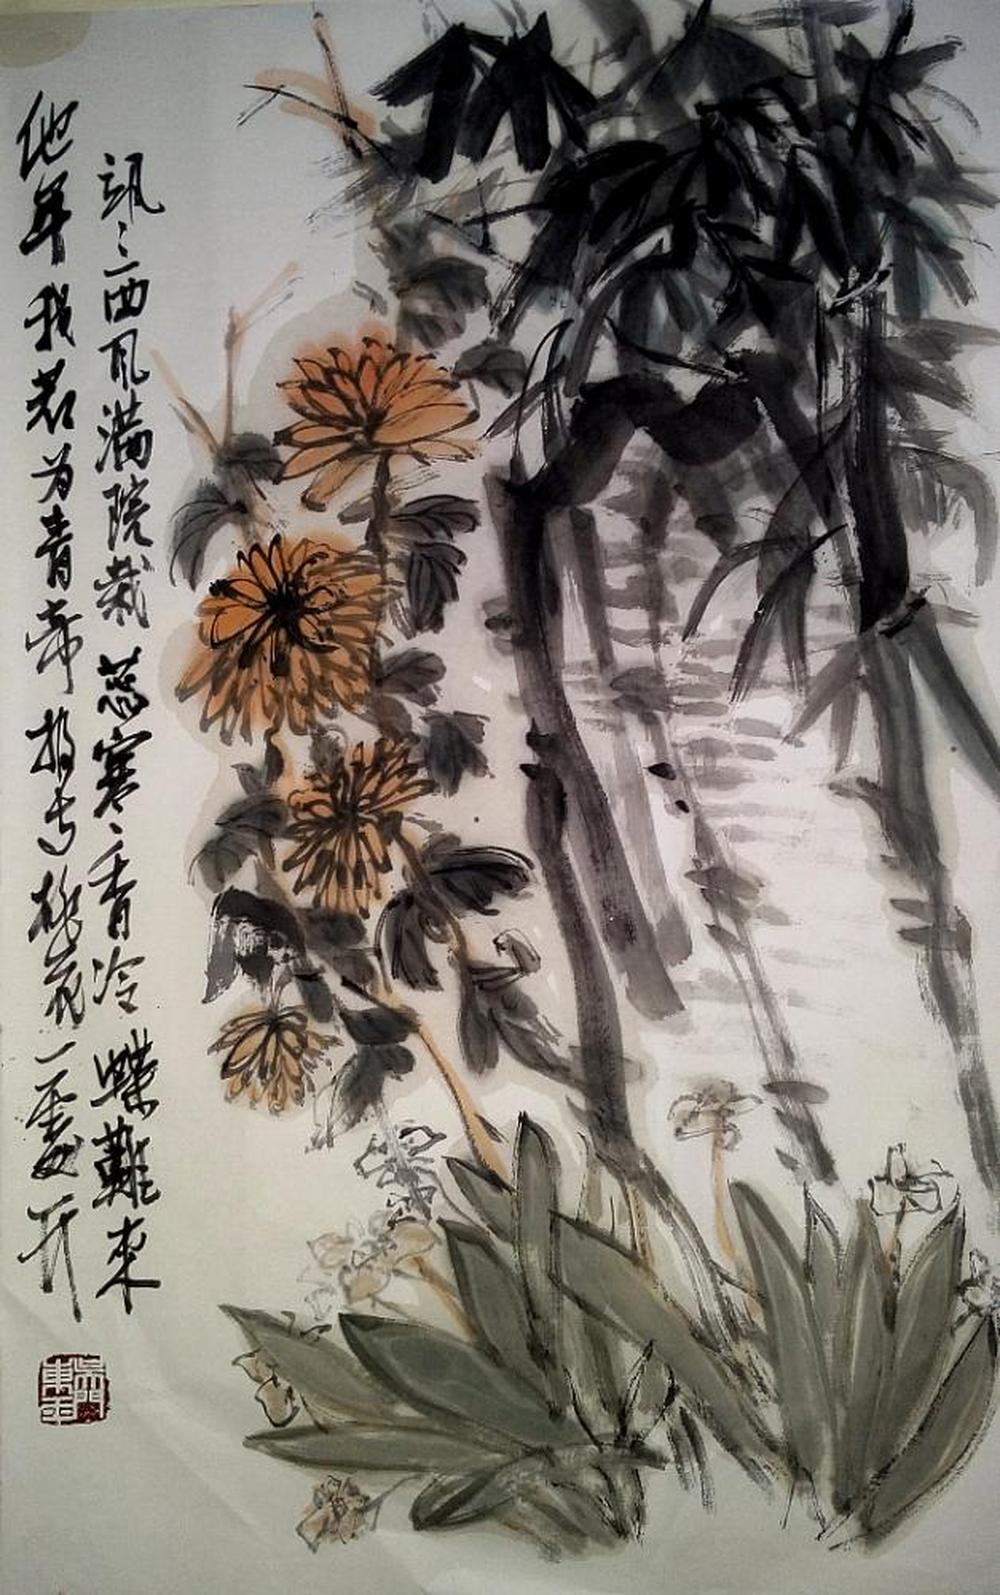 飒〻西风满院栽蕊寒香冷蝶難来
他年我若为青帝报与桃花一處开